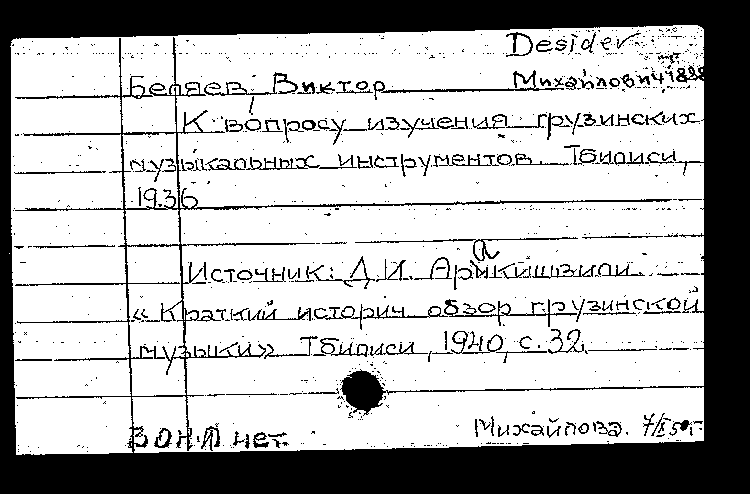 Desider
Беляев, Виктор Михайлович 1888
К вопросу изучения грузинских
музыкальных инструментов. Тбилиси,
1936
Источник: Д.И. Аракишвили.
«Краткий историч обзор грузинской
музыки» Тбилиси, 1940, с. 32.
В О Н Л нет. Михайлова.